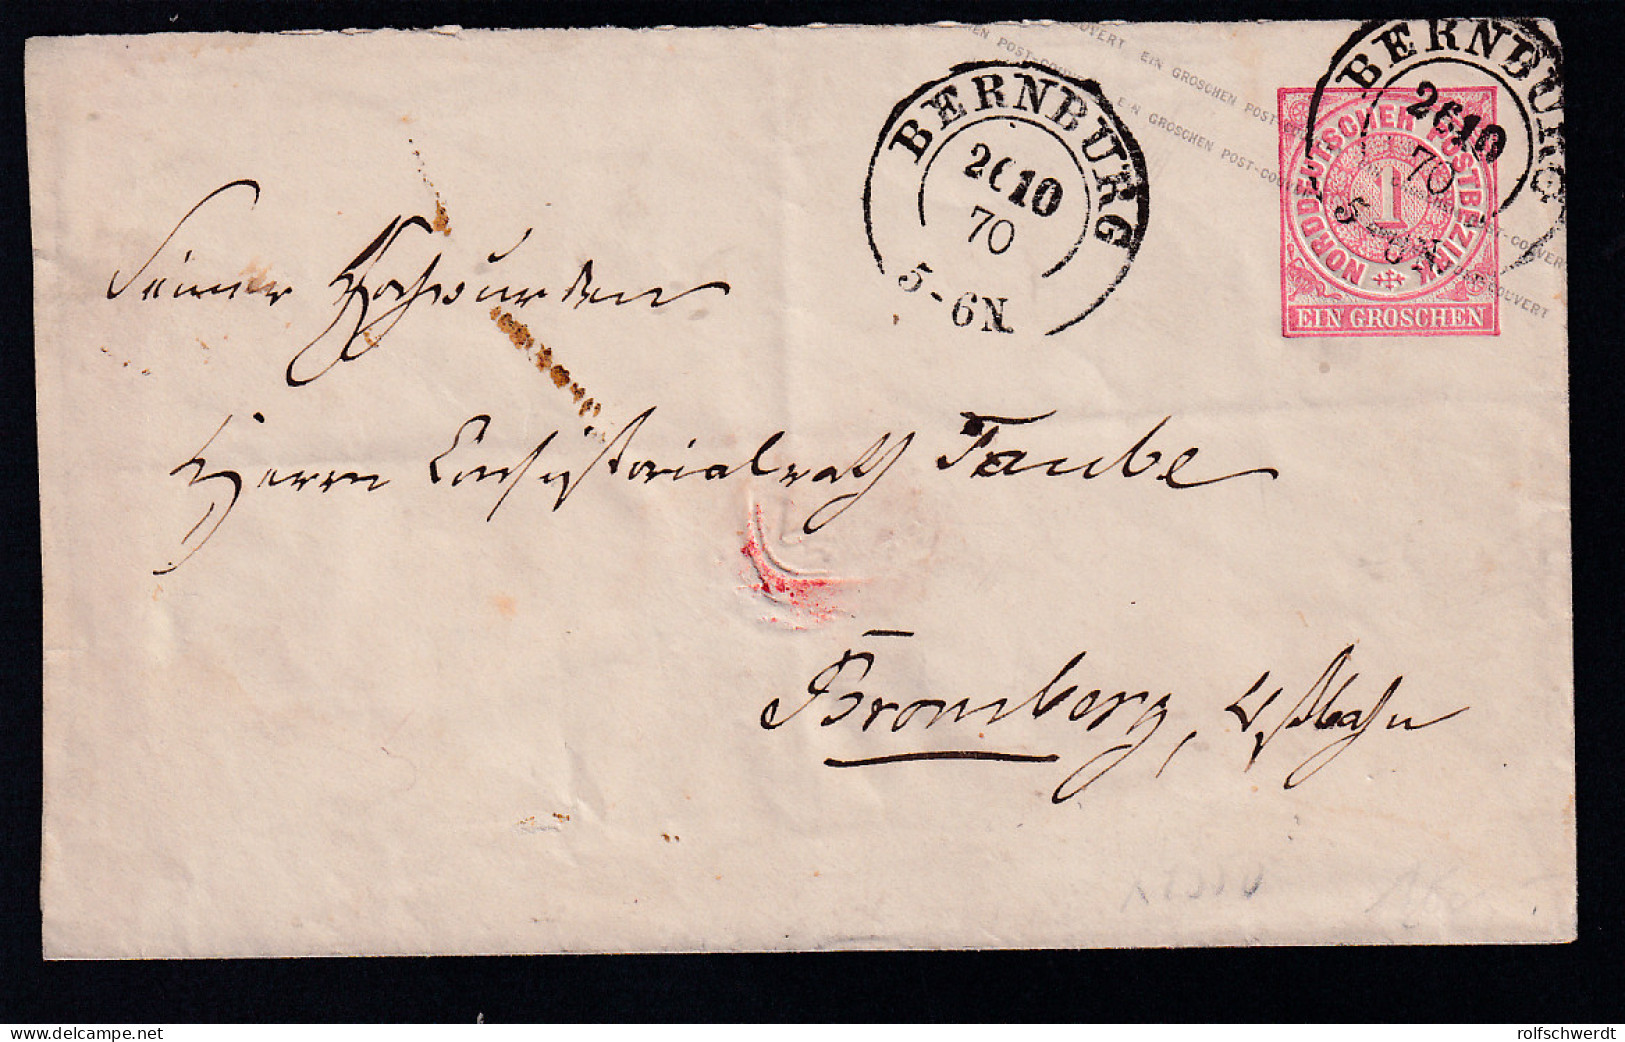 EIN GROSCHEN POST-COUVERT EIN GROSCHEN POST-COUVERT
BERNBURG
26 10
70
5-6N
BERNBURG
26 10
70
5-6N
NORDDEUTSCHER POSTBEZIRK
1
EIN GROSCHEN
Seiner Hochwürden
Herrn Consistorialrath Taube
Bromberg, Ostbahn
delcampe.net
rolfschwerdt